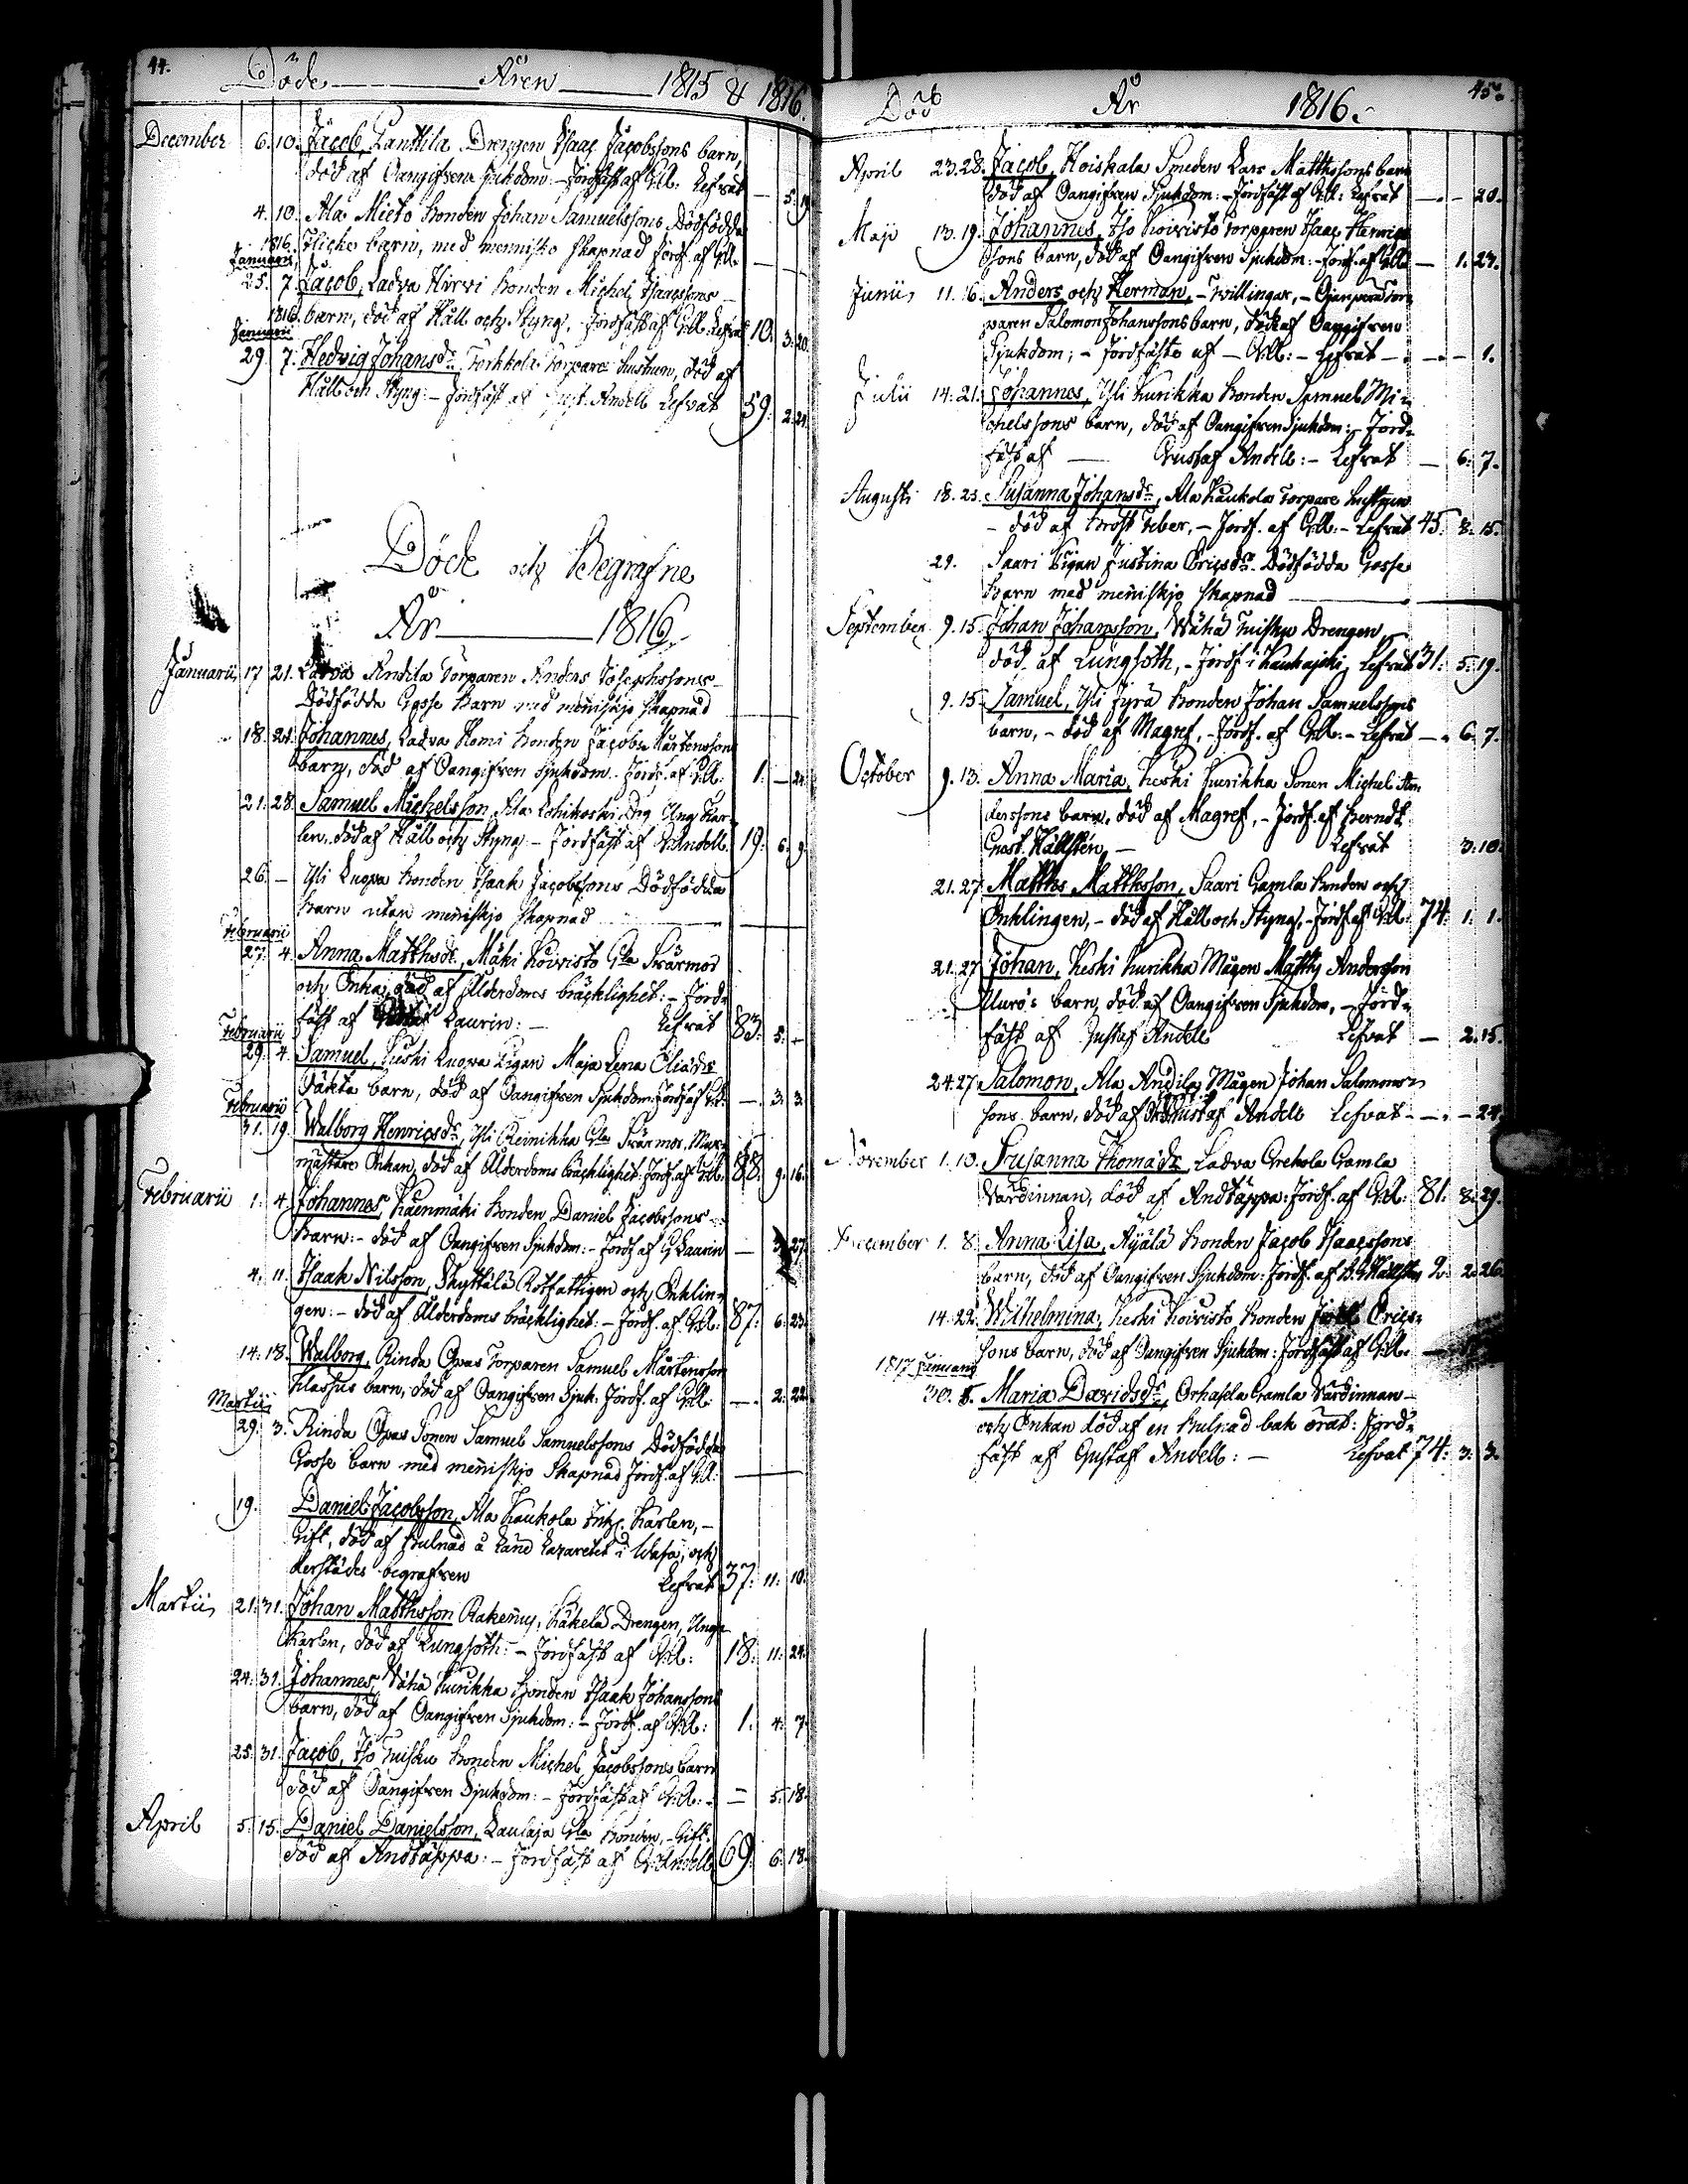 44.
Döde Åren 1815 & 1816.
December 6. 10. Jacob, Lanttila Drengen Isaac Jacobssons barn,
död af Oangifven Sjukdom: - Jordfäst af G:A: Lefvat — 5. 19.
4. 10. Ala Mieto Bonden Johan Samuelssons Dödfödda
Flicke barn, med mennisko skapnad Jordf. af G:A: —
1816. Januarii
25. 7. Jacob, Ladva Hirvi Bonden Michel Isaacssons
barn, död af Håll och Styng, - Jordfäst af G:A: Lefvat 10. 3. 20.
1816. Januarii
29. 7. Hedvig Johansdr. Torkkola Torpare hustrun, död af
Håll och Styng: - Jordfäst af Gust. Andell Lefvat 59. 2. 21.
Döde och Begrafne
År 1816
Januarii 17 21. Ladva Andila Torparen Anders Josephssons
Dödfödda Gosse Barn med menniskjo skapnad
18. 21. Johannes, Ladva Homi Bonden Jacob Mårtenssons
barn, död af Oangifven Sjukdom. Jordf. af G:A: 1. — 24.
21. 28. Samuel Michelsson, Ala Lohikoski Drg Ung Kar-
len, död af Håll och Styng - Jordfäst af G:Andell. 19. 6. 9.
26. — Yli Luopa Bonden Isaak Jacobssons Dödfödda
Barn utan menniskjo skapnad
Februarii
27. 4. Anna Matthsdr., Mäki Koivisto Gla Svärmor
och Enka, död af Ålderdoms bräcklighet: - Jord-
fäst af Laurin: - Lefvat 83. 5. —
Februarii
29. 4. Samuel, Keski Luopa Pigan Maja Lena Eliædr
oäkta barn, död af Oangifven Sjukdom: Jordfäst G:A: — 3. 3.
Februarii
31. 19. Walborg Henricsdr, Yli Reinikka Gla Svärmor, Mur-
mästare Enkan, död af Ålderdoms bräcklighet: Jordf. af G:A: 88. 9. 16.
Februarii 1. 4. Johannes, Käenmäki Bonden Daniel Jacobssons
Barn: - död af Oangifven Sjukdom: - Jordf. af G Laurin — 3. 27.
4. 11. Isaak Nilsson, Skyttälä Rotfattigen och Enklin-
gen: - död af Ålderdoms bräcklighet: - Jordf. af G:A: 87. 6. 23.
14. 18. Walborg, Rinda Opas Torparen Samuel Mårtensson
Klashus barn, död af Oangifven Sjuk: Jordf. af G:A: — 2. 22.
Martii
29. 3. Rinda Opas Sonen Samuel Samuelssons Dödfödda
Gosse barn med menniskjo skapnad Jordf. af G:A: —
19. Daniel Jacobsson, Ala Kaukola Inhys Karlen, -
Gift, död af Bulnad å Länd Lazaretet i Wasa, och
derstädes begrafven Lefvat 37. 11. 10.
Martii 21. 31. Johan Matthsson Rakenus, Käkelä Drengen, Unge
karlen, död af Lungsoth: - Jordfäst af G:A: 18: 11. 24.
24. 31. Johannes, Vähä Kurikka Bonden Isaak Johanssons
barn, död af Oangifven Sjukdom: - Jordf. af G:A: 1. 4. 7.
25. 31. Jacob, Iso Tuisku Bonden Michel Jacobssons barn
död af Oangifven Sjukdom: - Jordfäst af G:A: - — 5. 18.
April 5. 15. Daniel Danielsson, Laulaja Gla Bonden, - Gift.
död af Andtäppa: - Jordfäst af G:Andell 69. 6. 18.
45.
Död År 1816.
April 23. 28. Jacob, Koiskala Smeden Lars Matthssons barn
död af Oangifven Sjukdom: - Jordfäst af G:A: Lefvat — — 20.
Maji 13. 19. Johannes, Iso Koivisto Torparen Isaac Henrics-
sons barn, död af Oangifven Sjukdom: - Jordf. af G:A: — 1. 27.
Junii 11. 16. Anders och Herman, - Twillingar, - Ojanperä Tor-
paren Salomon Johanssons barn, död af Oangifven
Sjukdom; - Jordfäste af - G:A: - Lefvat - — — 1.
Julii 14. 21. Johannes, Yli Kurikka Bonden Samuel Mi-
chelssons barn, död af Oangifven Sjukdom: - Jord-
fäst af — Gustaf Andell: - Lefvat — 6. 7.
Augusti 18. 25. Susanna Johansdr, Ala Kaukola Torpare hustrun
- död af Bröst Feber, - Jordf. af G:A: - Lefvat 45. 8. 15.
29. Saari Pigan Justina Ericsdr. Dödfödda Gosse
Barn med menniskjo skapnad
September 9. 15. Johan Johansson, Wähä Tuisku Drengen,
död af Lungsoth, - Jordf. i Kauhajoki, Lefvat 31. 5. 19.
9. 15. Samuel, Yli Jyrä Bonden Johan Samuelssons
barn, - död af Magref, - Jordf. af G:A: - Lefvat — 6. 7.
October 9. 13. Anna Maria, Keski Kurikka Sonen Michel An-
derssons barn, död af Magref, - Jordf. af Berndt
Gust. Hällstén, - Lefvat 3. 10.
21. 27. Matths Matthsson, Saari Gamla Bonden och
Enklingen, - död af Håll och Styng, - Jordf. af G:A: 74. 1. 1.
21. 27. Johan, Keski Kurikka Mågen Matths Andersson
Muro's barn, död af Oangifven Sjukdom, - Jord-
fäst af Gustaf Andell Lefvat — 2. 15.
24. 27. Salomon, Ala Andila Mågen Johan Salomons-
sons barn, död af Gustaf Andell Lefvat - — — 24.
November 1. 10. Susanna Thomædr, Ladva Grekola Gamla
Värdinnan, död af Andtäppa: Jordf. af G:A: 81. 8. 29.
December 1. 8. Anna Lisa, Äijälä Bonden Jacob Isaacssons
barn, död af Oangifven Sjukdom: Jordf. af B. G Hällstén 2. 2. 26.
14. 22. Wilhelmina, Keski Koivisto Bonden Erics-
sons barn, död af Oangifven Sjukdom: Jordfäst af G:A: —
1817 Januarii
30. 5. Maria Davidsdr, Orhasla Gamla Värdinnan
och Enkan död af en Bulnad bak örat: Jord-
fäst af Gustaf Andell: - Lefvat 74. 3. 3.